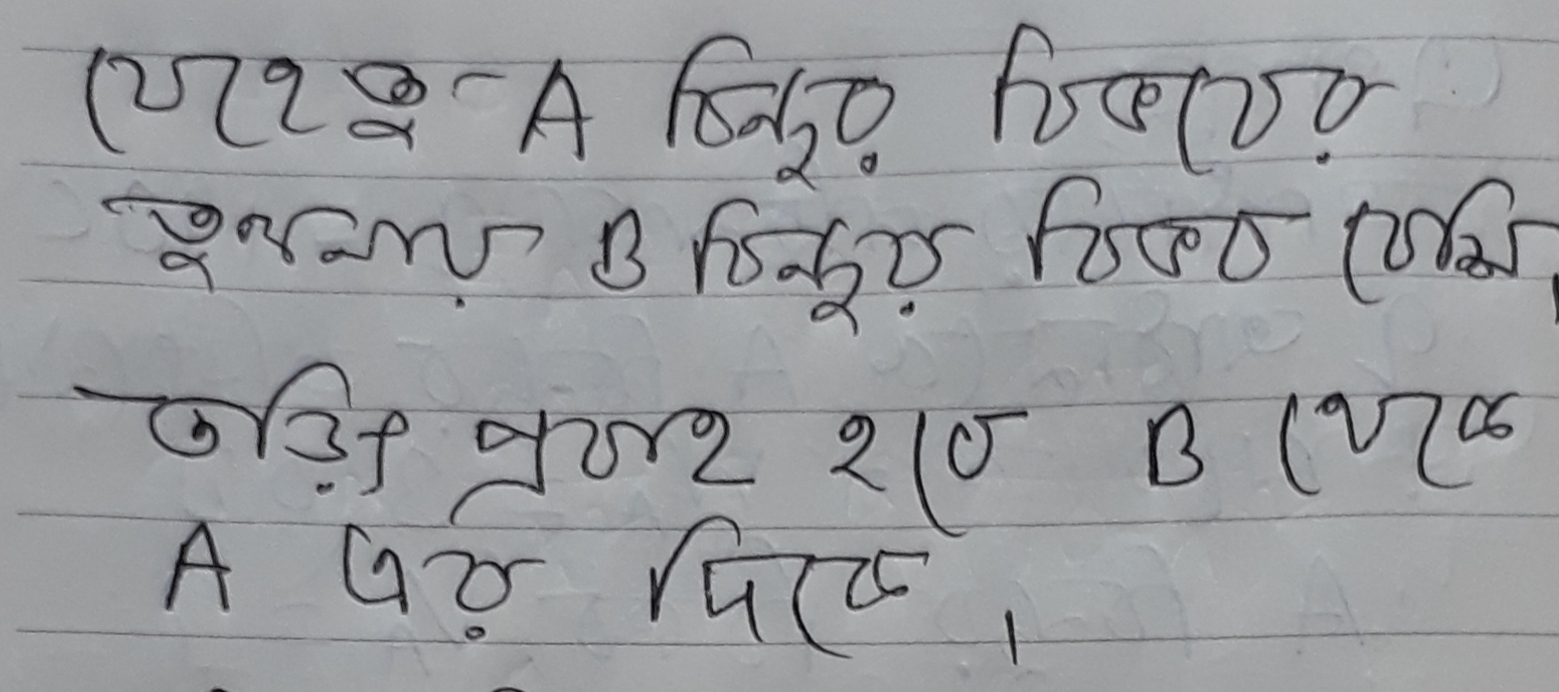 যেহেতু A বিন্দুর বিভবের
তুলনায় B বিন্দুর বিভব বেশি,
তড়িৎ প্রবাহ হবে B থেকে
A এর দিকে।